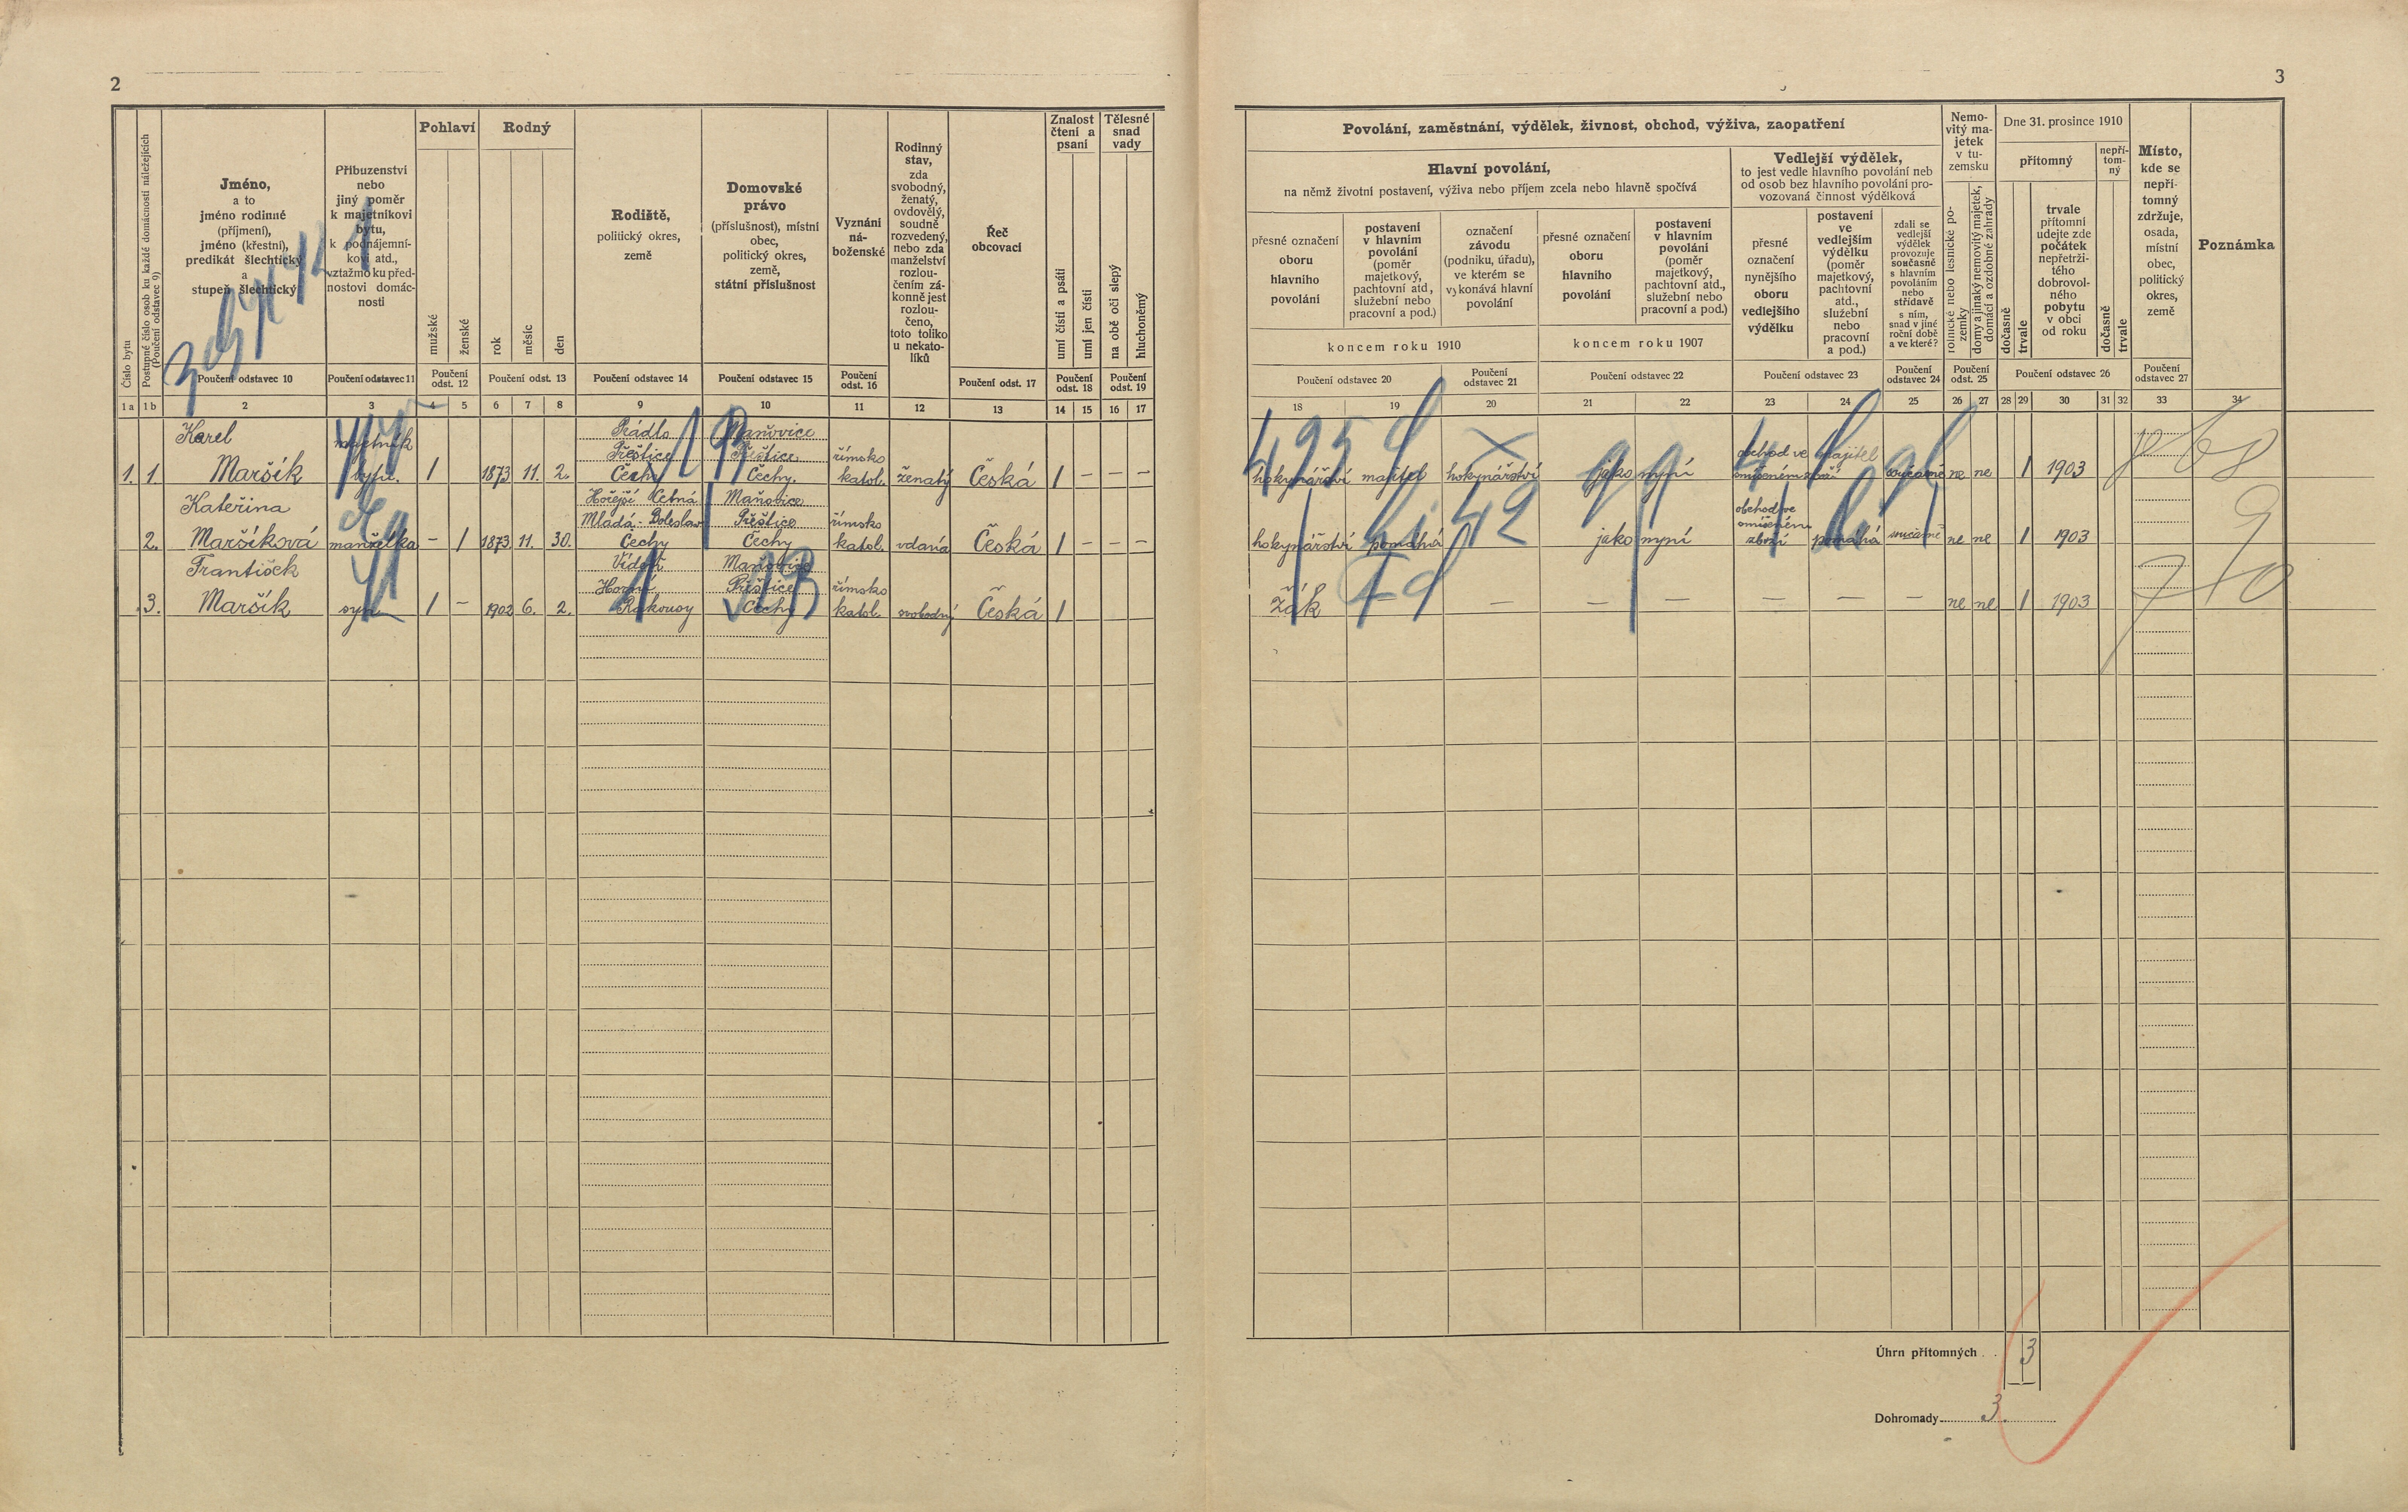 2
3
Číslo bytu
Postupné číslo osob ku každé domácnosti náležejících
(Poučení odstavec 9)
Jméno,
a to
jméno rodinné
(příjmení),
jméno (křestní),
predikát šlechtický
a
stupeň šlechtický
Poučení odstavec 10
Příbuzenství
nebo
jiný poměr
k majetníkovi
bytu,
k podnájemní-
kovi atd.,
vztažmo ku před-
nostovi domác-
nosti
Poučení odstavec 11
Pohlaví
mužské
ženské
Poučení
odst. 12
Rodný
rok
měsíc
den
Poučení odst. 13
Rodiště,
politický okres,
země
Poučení odstavec 14
Domovské
právo
(příslušnost), místní
obec,
politický okres,
země,
státní příslušnost
Poučení odstavec 15
Vyznání
ná-
boženské
Poučení
odst. 16
Rodinný
stav,
zda
svobodný,
ženatý,
ovdovělý,
soudně
rozvedený,
nebo zda
manželství
rozlou-
čením zá-
konně jest
rozlou-
čeno,
toto toliko
u nekato-
líků
Řeč
obcovací
Poučení odst. 17
Znalost
čtení a
psaní
umí čísti a psáti
umí jen čísti
Poučení
odst. 18
Tělesné
snad
vady
na obě oči slepý
hluchoněmý
Poučení
odst. 19
1 a 1 b 2 3 4 5 6 7 8 9 10 11 12 13 14 15 16 17
Povolání, zaměstnání, výdělek, živnost, obchod, výživa, zaopatření
Hlavní povolání,
na němž životní postavení, výživa nebo příjem zcela nebo hlavně spočívá
přesné označení
oboru
hlavního
povolání
postavení
v hlavním
povolání
(poměr
majetkový,
pachtovní atd.,
služební nebo
pracovní a pod.)
označení
závodu
(podniku, úřadu),
ve kterém se
vykonává hlavní
povolání
koncem roku 1910
přesné označení
oboru
hlavního
povolání
postavení
v hlavním
povolání
(poměr
majetkový,
pachtovní atd.,
služební nebo
pracovní a pod.)
koncem roku 1907
Poučení odstavec 20
Poučení
odstavec 21
Poučení odstavec 22
Vedlejší výdělek,
to jest vedle hlavního povolání neb
od osob bez hlavního povolání pro-
vozovaná činnost výdělková
přesné
označení
nynějšího
oboru
vedlejšího
výdělku
postavení
ve
vedlejším
výdělku
(poměr
majetkový,
pachtovní
atd.,
služební
nebo
pracovní
a pod.)
zdali se
vedlejší
výdělek
provozuje
současně
s hlavním
povoláním
nebo
střídavě
s ním,
snad v jiné
roční době
a ve které?
Poučení odstavec 23
Poučení
odstavec 24
Nemo-
vitý ma-
jetek
v tu-
zemsku
rolnické nebo lesnické po-
zemky
domy a jinaký nemovitý majetek,
domácí a ozdobné zahrady
Poučení
odst. 25
Dne 31. prosince 1910
přítomný
dočasně
trvale
trvale
přítomní
udejte zde
počátek
nepřetrži-
tého
dobrovol-
ného
pobytu
v obci
od roku
nepří-
tom-
ný
dočasně
trvale
Poučení odstavec 26
Místo,
kde se
nepří-
tomný
zdržuje,
osada,
místní
obec,
politický
okres,
země
Poučení
odstavec 27
Poznámka
18 19 20 21 22 23 24 25 26 27 28 29 30 31 32 33 34
Karel majetník Prádlo Maňovice
Přeštice Přeštice římsko obchod ve majitel
1. 1. Maršík 1 1873 11. 2. Čechy Čechy. katol. ženatý Česká 1 – – – hokynářství majitel hokynářství jako nyní smíšeném současně ne ne 1 1903
Kateřina Hořejší Cetná Maňovice
Mladá-Boleslav Přeštice římsko obchod ve smíšeném
2. Maršíková manželka – 1 1873 11. 30. Čechy Čechy katol. vdaná Česká 1 – – – hokynářství pomáhá jako nyní zboží pomáhá současně ne ne 1 1903
František Vídeň Maňovice
Horní Přeštice římsko
3. Maršík syn 1 – 1902 6. 2. Rakousy Čechy katol. svobodný Česká 1 žák – – – – – – – ne ne 1 1903
Úhrn přítomných 3
Dohromady 3.